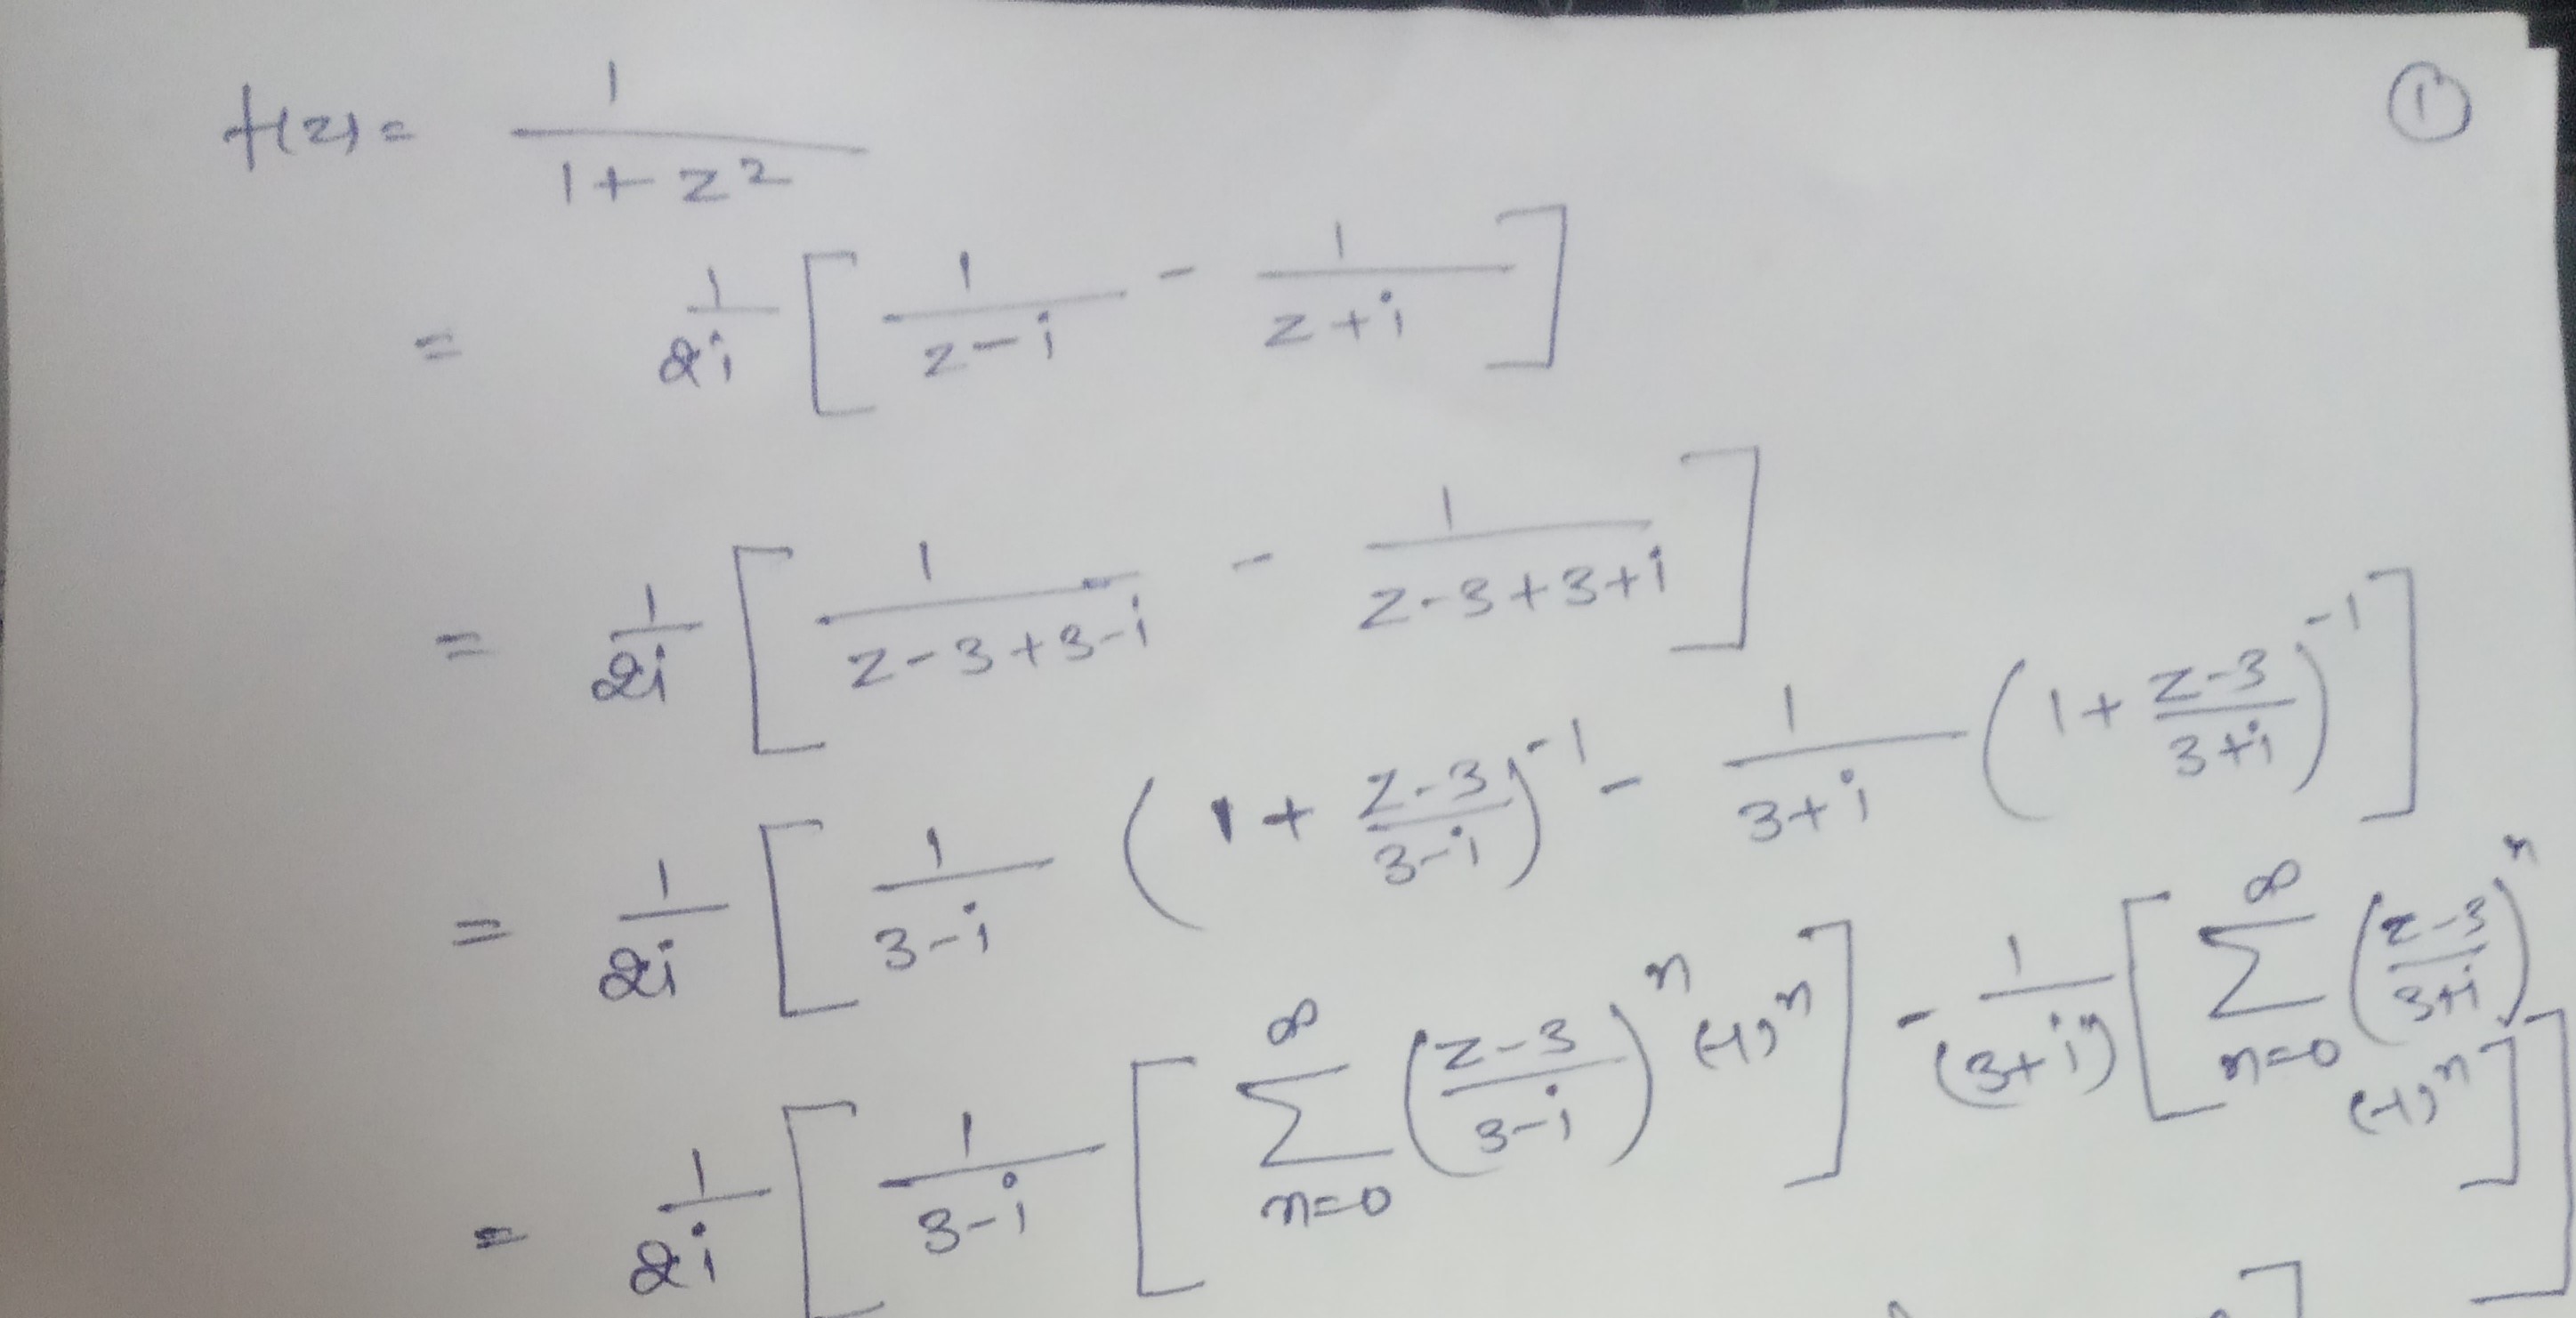 ①
f(z) = 1/(1+z²)
= 1/2i [ 1/(z-i) - 1/(z+i) ]
= 1/2i [ 1/(z-3+3-i) - 1/(z-3+3+i) ]
= 1/2i [ 1/(3-i) (1 + (z-3)/(3-i))⁻¹ - 1/(3+i) (1 + (z-3)/(3+i))⁻¹ ]
= 1/2i [ 1/(3-i) [ ∞ Σ n=0 ((z-3)/(3-i))ⁿ (-1)ⁿ ] - 1/(3+i) [ ∞ Σ n=0 ((z-3)/(3+i))ⁿ (-1)ⁿ ] ]